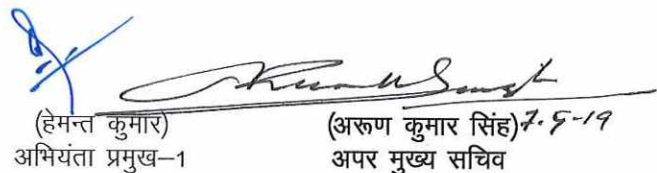 (हेमन्त कुमार)
अभियंता प्रमुख–1
(अरूण कुमार सिंह)
अपर मुख्य सचिव